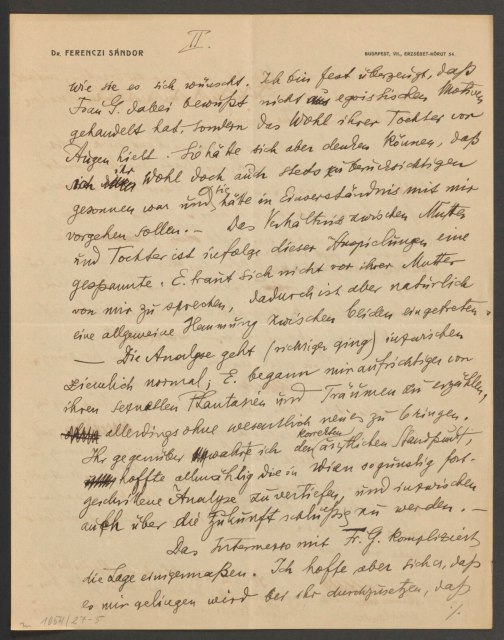 II.
Dr. FERENCZI SÁNDOR
BUDAPEST, VII., ERZSÉBET-KÖRUT 54.
wie sie es sich wünscht. Ich bin fest überzeugt, daß
Frau G. dabei bewußt nicht aus egoistischen Motiven
gehandelt hat, sondern das Wohl ihrer Tochter vor
Augen hielt. Sie hätte sich aber denken können, daß
ich ihr Wohl doch auch stets zu berücksichtigen
gesonnen war und sie hätte im Einverständnis mit mir
vorgehen sollen. — Das Verhältnis zwischen Mutter
und Tochter ist infolge dieser Anspielungen eine
gespannte. E. traut sich nicht vor ihrer Mutter
von mir zu sprechen, dadurch ist aber natürlich
eine allgemeine Hemmung zwischen beiden eingetreten.
— Die Analyse geht (richtiger ging) inzwischen
ziemlich normal; E. begann mir aufrichtiger von
ihren sexuellen Phantasien und Träumen zu erzählen,
allerdings ohne wesentlich neues zu bringen.
Ihr gegenüber wahrte ich den korrekten ärztlichen Standpunkt,
hoffte allmählig die in Wien so günstig fort-
geschrittene Analyse zu vertiefen, und inzwischen
auch über die Zukunft schlüßig zu werden. —
Das Intermezzo mit Fr. G. kompliziert
die Lage einigermaßen. Ich hoffe aber sicher, daß
es mir gelingen wird bei ihr durchzusetzen, daß
./.
1054/27-5